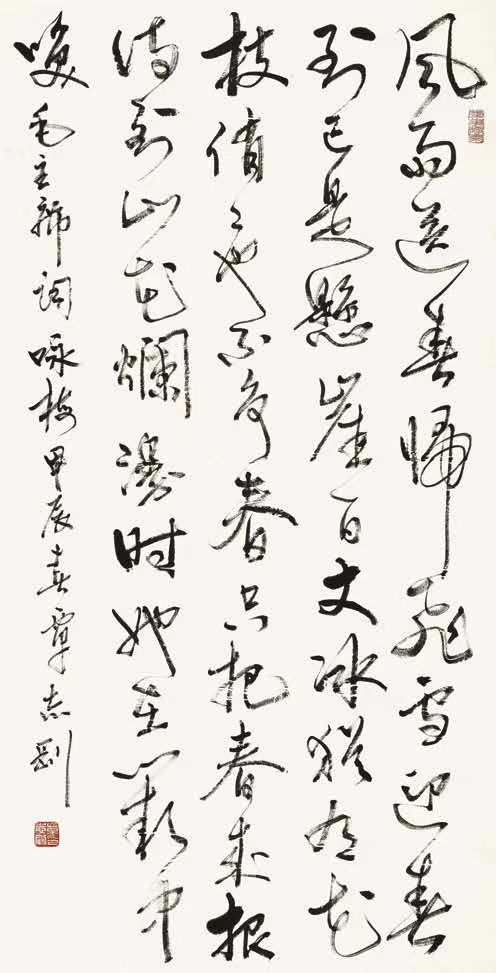 風雨送春歸飛雪迎春
到已是懸崖百丈冰猶有花
枝俏々也不争春只把春来报
待到山花爛漫时她在叢中
咲 毛主席词咏梅甲辰春覃志剛